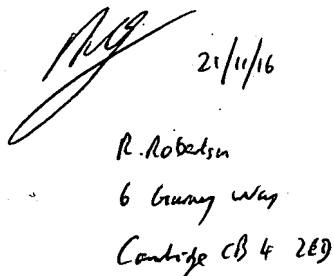 21/11/16
R. Robertson
6 Gurney Way
Cambridge CB4 2ED